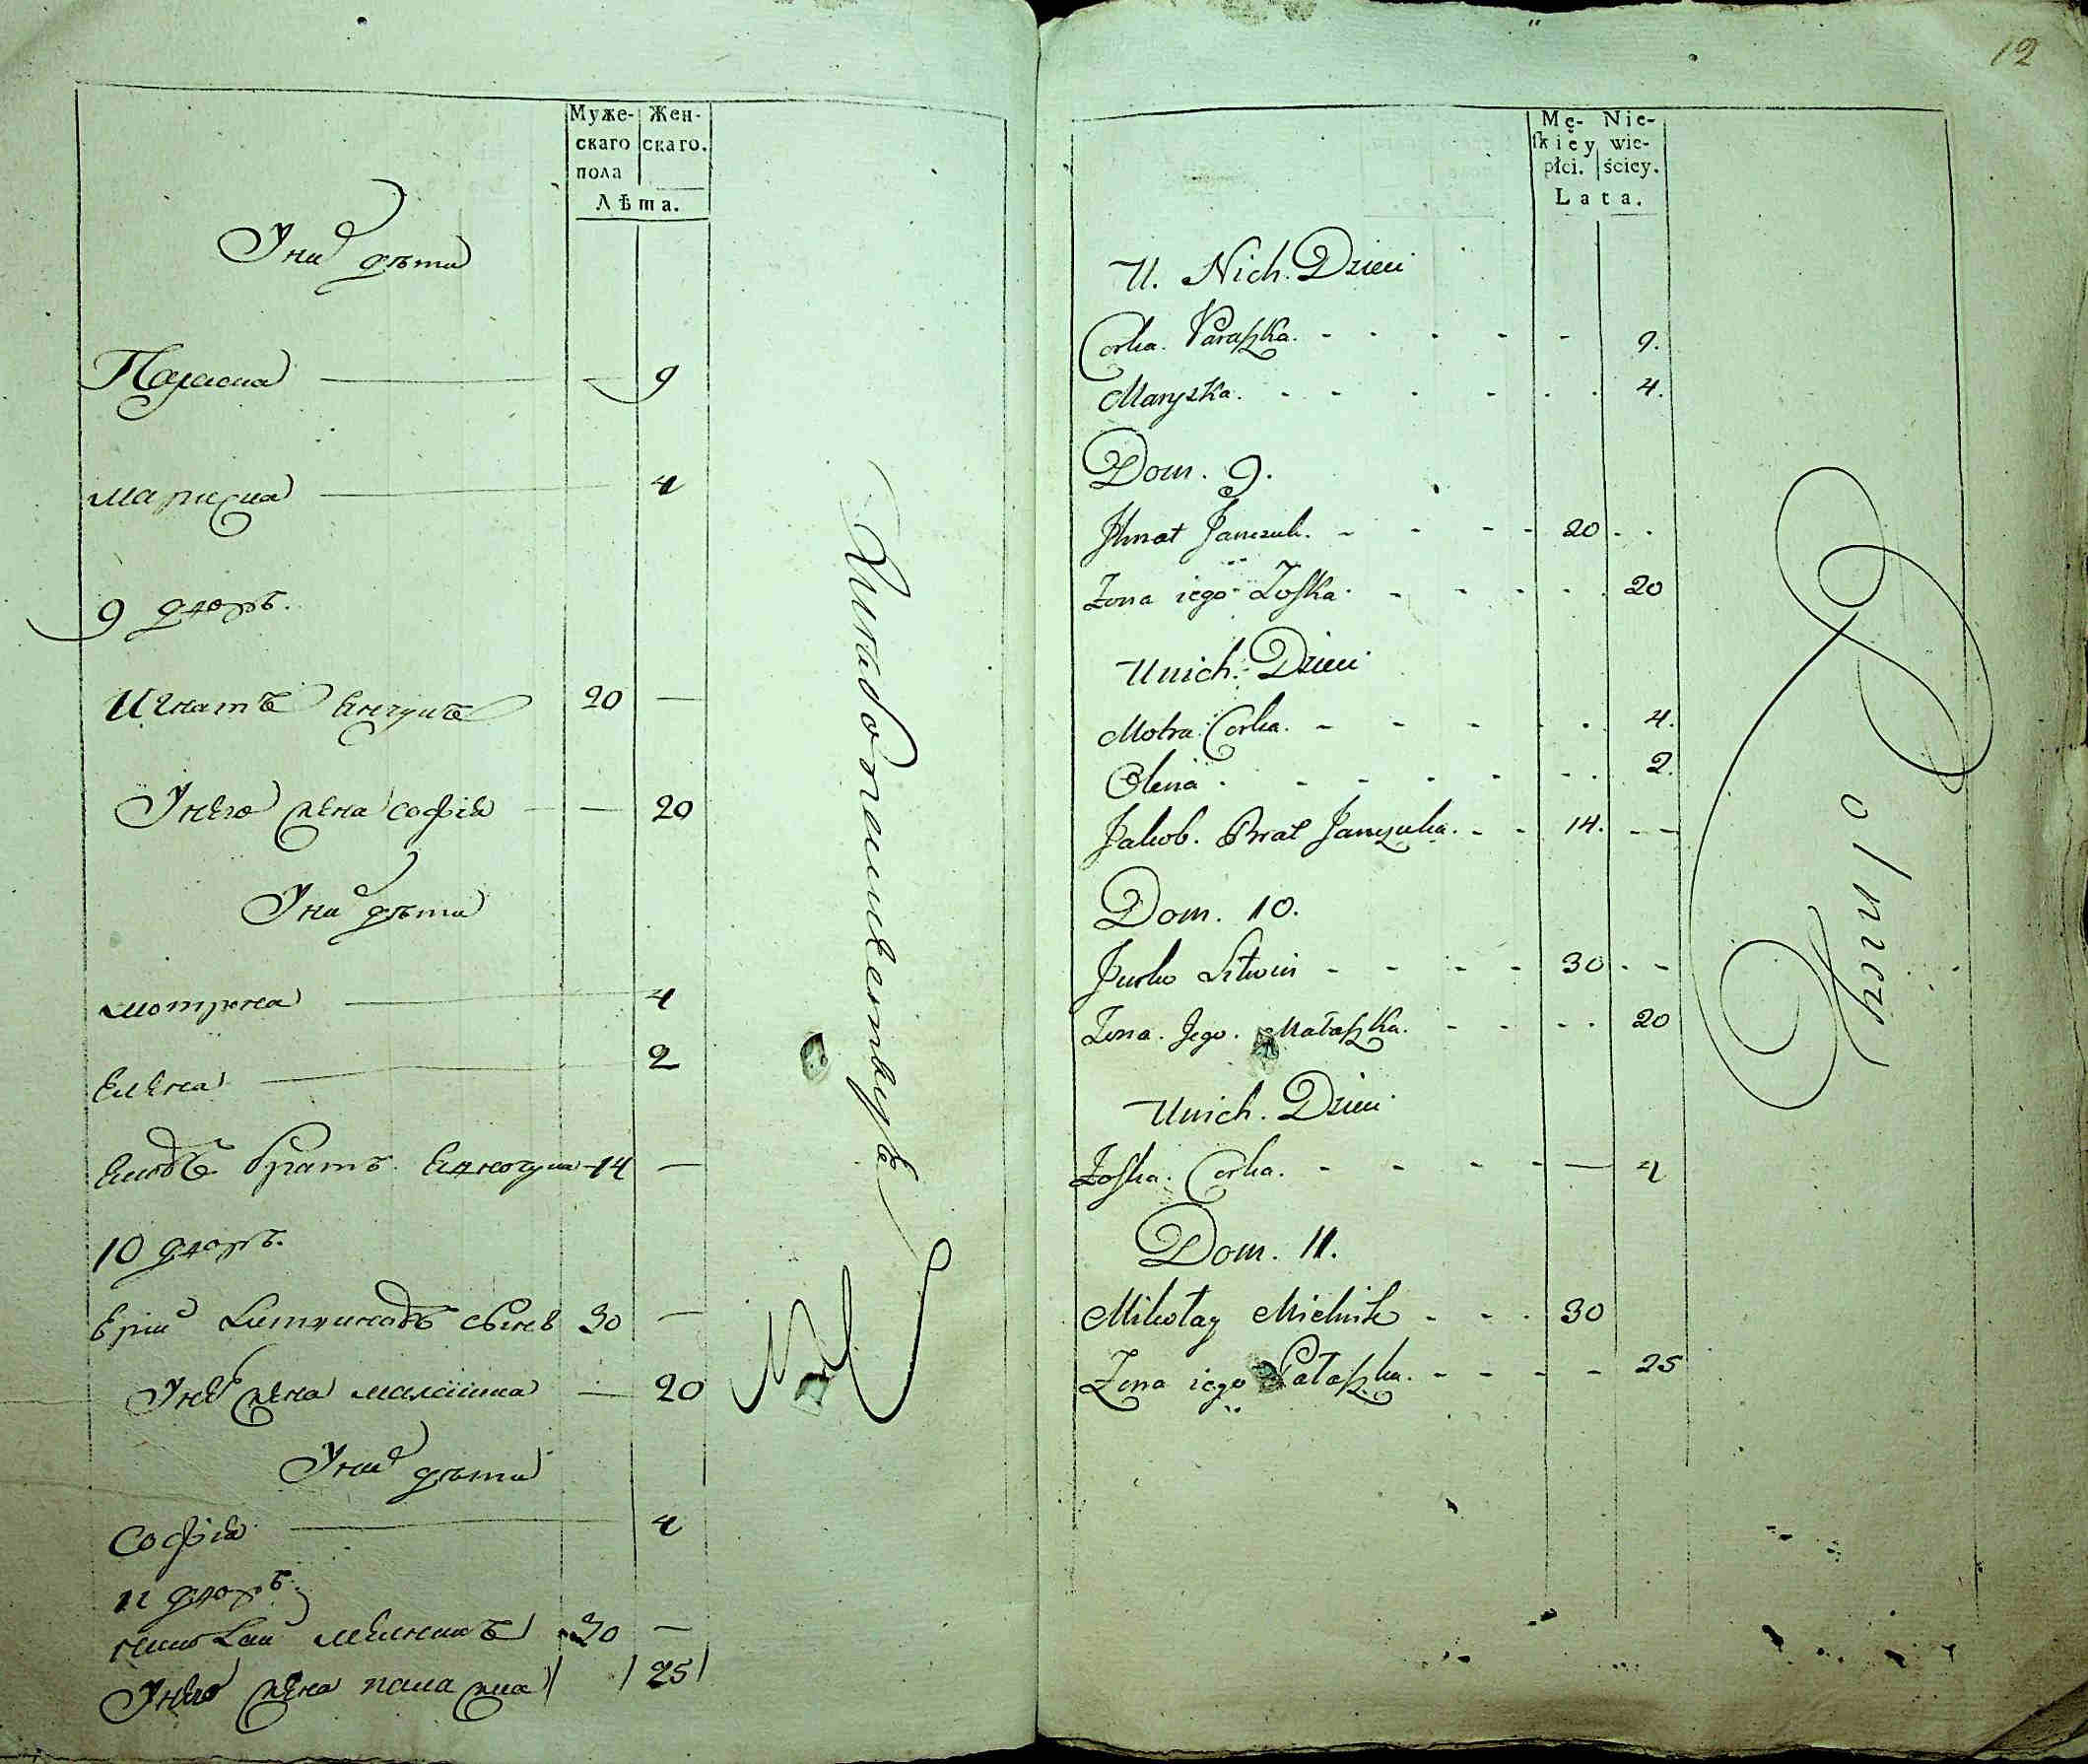 Муже- Жен-
скаго скаго.
пола
Лѣта.
У ниⷯ дѣти
Параска — 9
Мариска — 4
9 дворъ.
Игнатъ Янчукъ 20 —
У него жена Софія — 20
У ниⷯ дѣти
Мотрена — 4
Елена — 2
Яковъ братъ Янчука 14 —
10 дворъ.
Юрий Литвиновъ сынъ 30 —
У неⷢ жена Малашка — 20
У ниⷯ дѣти
Софія — 4
11 дворъ.
Николай Мелникъ 30 —
У него жена Палашка 25
12
Mę- Nie-
ſkiey wie-
płci. ściey.
Lata.
U. Nich. Dzieci
Corka. Paraszka. - - - - - 9.
Maryszka. - - - - - - 4.
Dom. 9.
Jhnat Janczuk. - - - - 20 - -
Zona iego Zoſka. - - - - - 20
U nich. Dzieci
Motra. Corka. - - - - - 4.
Olena - - - - - - - 2.
Jakob. Brat Janczuka. - - 14. - -
Dom. 10.
Jurko Litwin - - - - 30 - -
Zona. Jego. Małaszka. - - - - 20
U nich. Dzieci
Zoſka. Corka. - - - - — 4
Dom. 11.
Mikołay Mielnik - - - 30
Zona iego Pałaszka. - - - - 25